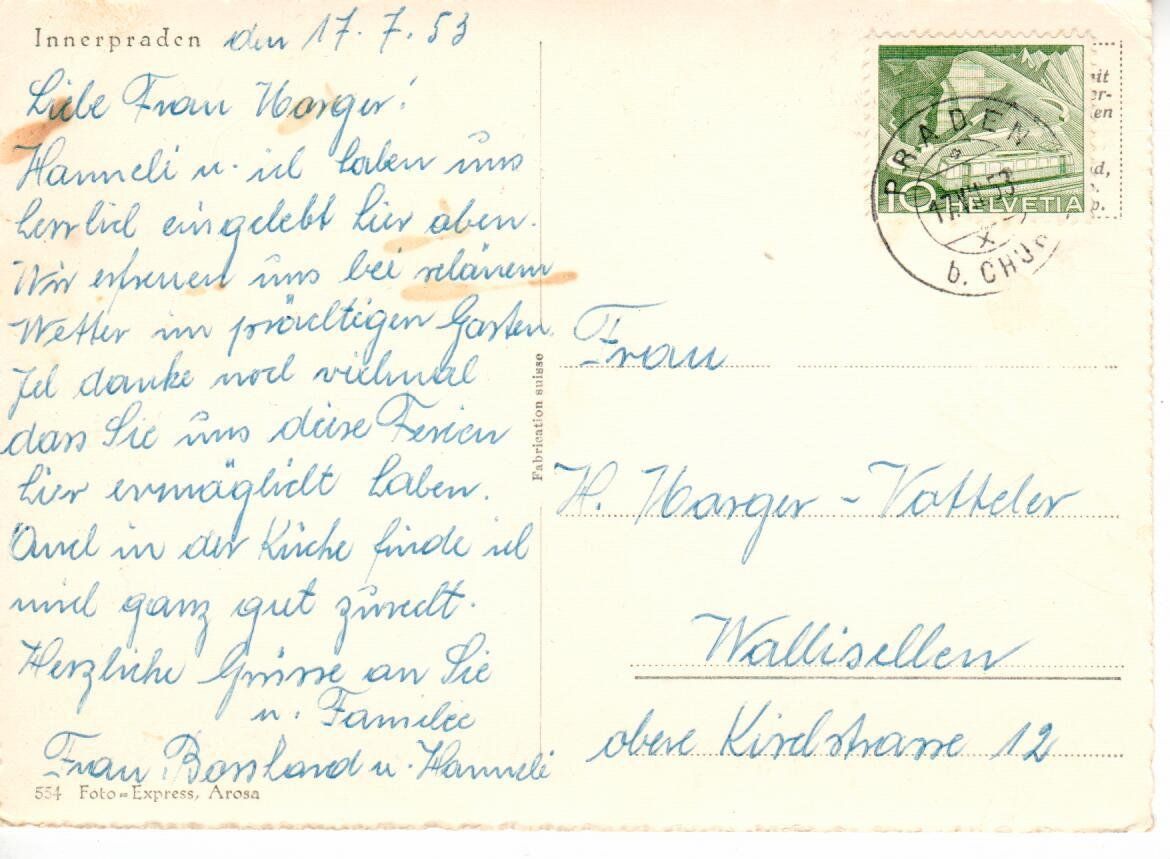 Innerpraden den 17. 7. 53
Liebe Frau Harger!
Hanneli u. ich haben uns
herrlich eingelebt hier oben.
Wir erfreuen uns bei schönem
Wetter im prächtigen Garten.
Ich danke noch vielmal
dass Sie uns diese Ferien
hier ermöglicht haben.
Auch in der Küche finde ich
mich ganz gut zurecht.
Herzliche Grüsse an Sie
u. Familie
Frau Bosshard u. Hanneli
554 Foto-Express, Arosa
Fabrication suisse
PRADEN
17.VII.53
b. CHUR
10 HELVETIA
Frau
H. Harger-Vatteler
Wallisellen
obere Kirchstrasse 12